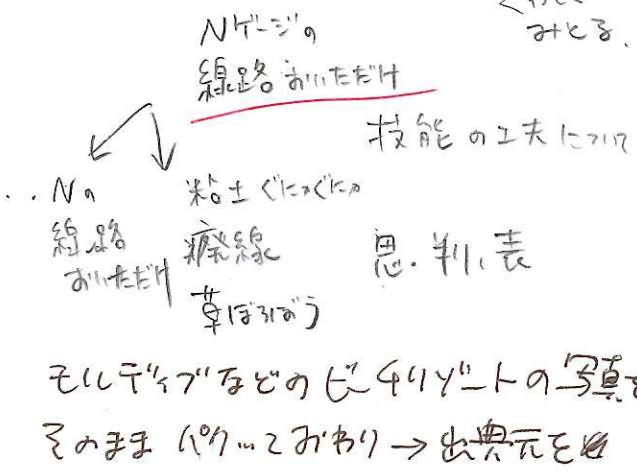 みとる.
Nゲージの
線路おいただけ
技能の工夫について
‥Nの
線路
おいただけ
粘土ぐにゃぐにゃ
廃線
草ぼうぼう
思.判.表
モルディブなどのビーチリゾートの写真を
そのままパクッておわり→出典元を